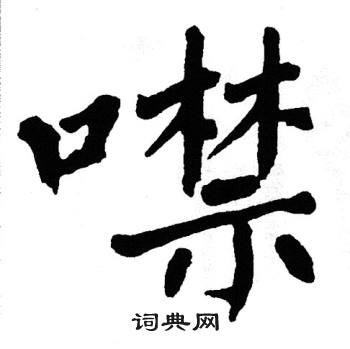 噤
词典网